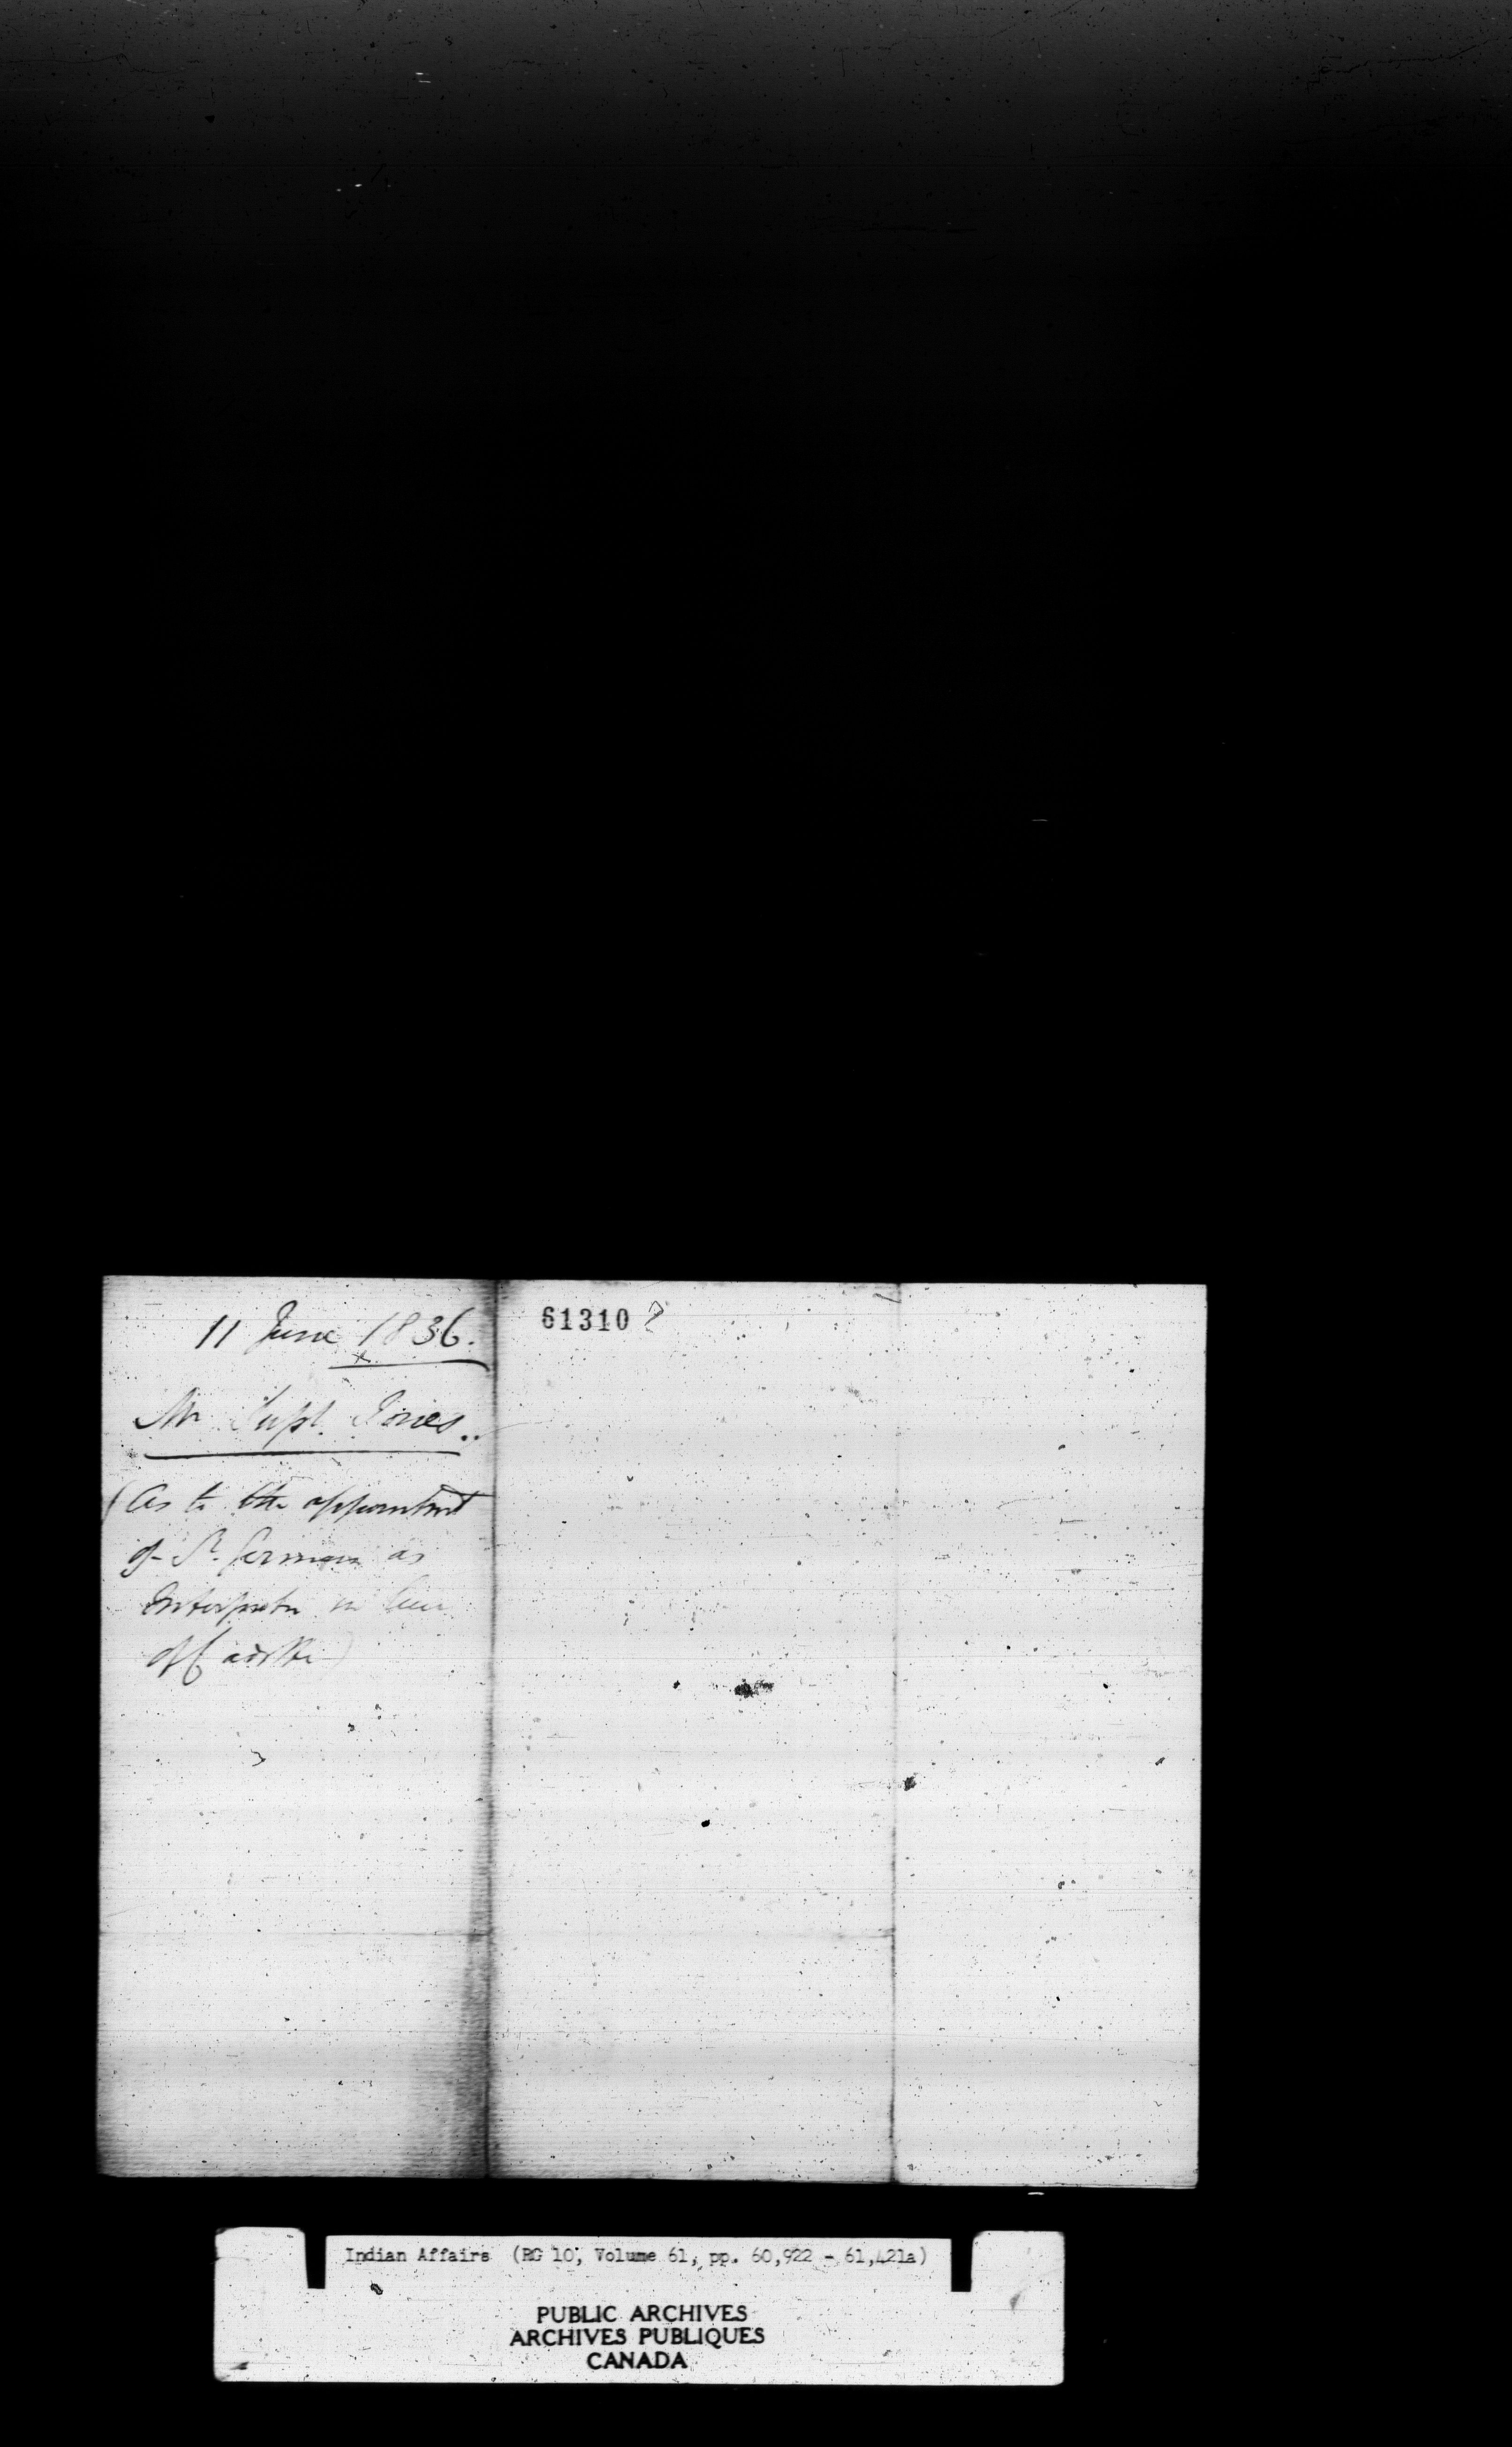 11 June 1836.
Mr Supt. Jones..
(As to the appointmt
of St. Germain as
Interpreter in lieu
of
61310
Indian Affairs (RG 10, Volume 61, pp. 60,922 - 61,421a)
PUBLIC ARCHIVES
ARCHIVES PUBLIQUES
CANADA